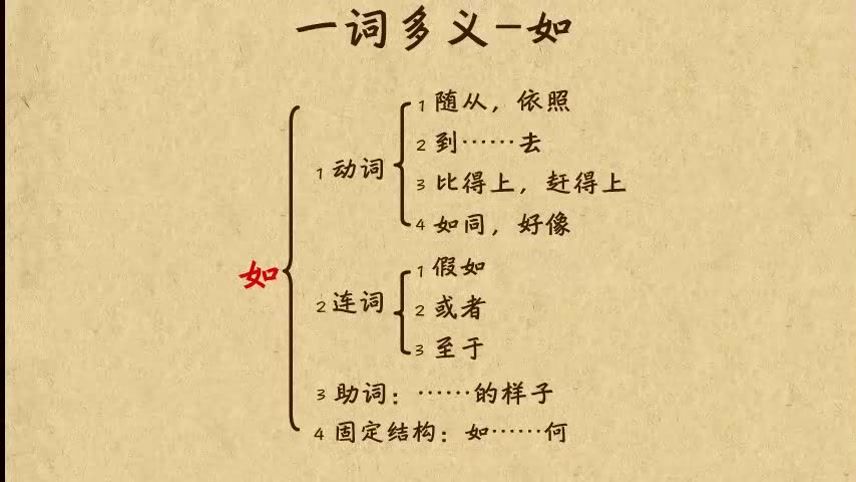 一词多义-如
如
1 动词
1 随从，依照
2 到……去
3 比得上，赶得上
4 如同，好像
2 连词
1 假如
2 或者
3 至于
3 助词：……的样子
4 固定结构：如……何